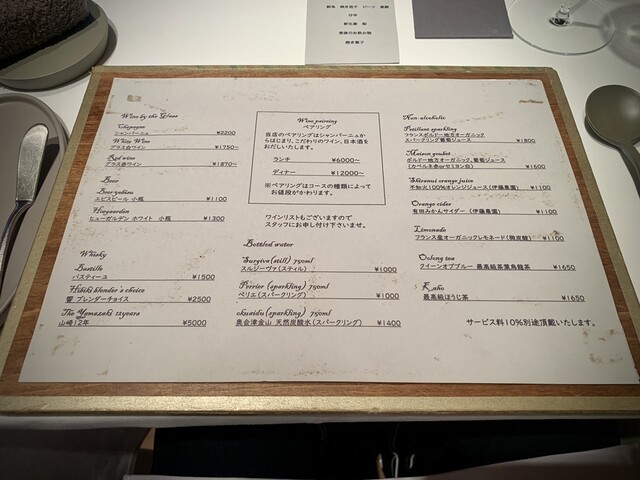 甘味
最後のお飲み物
焼き菓子
Wine by the Glass
Chapagne
シャンパーニュ ¥2200
White Wine
グラス白ワイン ¥1750~
Red wine
グラス赤ワイン ¥1870~
Beer
Beer-yebisu
エビスビール 小瓶 ¥1100
Hoegaarden
ヒューガルデン ホワイト 小瓶 ¥1300
Whisky
Bastille
バスティーユ ¥1500
Hibiki blender's choice
響 ブレンダーチョイス ¥2500
The Yamazaki 12years
山崎12年 ¥5000
Wine pairing
ペアリング
当店のペアリングはシャンパーニュか
らはじまり、こだわりのワイン、日本酒を
おだしいたします。
ランチ ¥6000~
ディナー ¥12000~
※ペアリングはコースの種類によって
お値段がかわります。
ワインリストもございますので
スタッフにお申し付け下さいませ。
Bottled water
Surgiva(still) 750ml
スルジーヴァ(スティル) ¥1000
Perrier (sparkling) 750ml
ペリエ(スパークリング) ¥1000
okuaidu(sparkling) 750ml
奥会津金山 天然炭酸水(スパークリング) ¥1400
Non-alcoholic
Petillant sparkling
フランスボルドー地方オーガニック
スパークリング葡萄ジュース ¥1800
Maison goubet
ボルドー地方オーガニック、葡萄ジュース
(カベルネ赤orセミヨン白) ¥1600
Shiranui orange juice
不知火100%オレンジジュース(伊藤農園) ¥1100
Orange cider
有田みかんサイダー(伊藤農園) ¥1100
Limonade
フランス産オーガニックレモネード(微炭酸) ¥1100
Oolong tea
クイーンオブブルー 最高級茶葉烏龍茶 ¥1650
Kaho
最高級ほうじ茶 ¥1650
サービス料10%別途頂戴いたします。